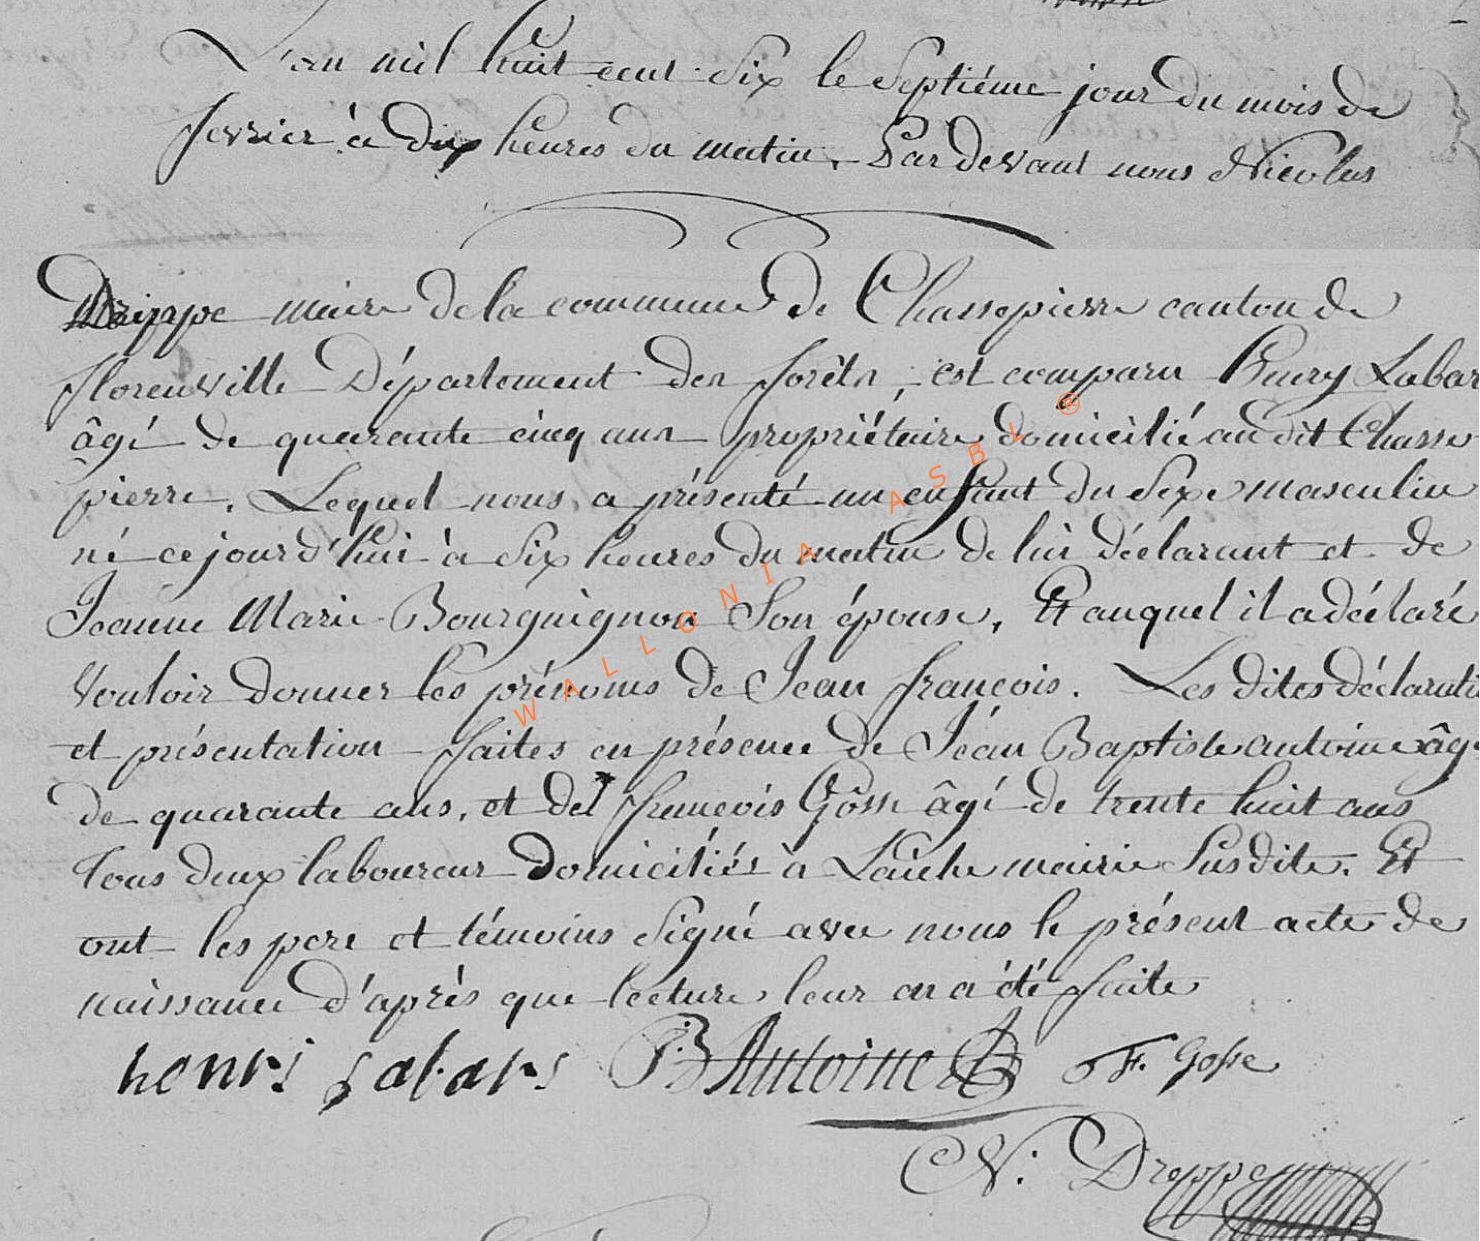 L'an mil huit cent six le septiéme jour du mois de
fevrier à dix heures du matin, Par devant nous Nicolas
Drippe maire de la commune de Chassepierre canton de
florenville Département des forêts, est comparu Henry Labar
âgé de quarante cinq ans propriétaire domicilié au dit Chasse
pierre. Lequel nous a présenté un enfant du sexe masculin
né ce jour d'hui à six heures du matin de lui déclarant et de
Jeanne Marie Bourguignon son épouse, Et auquel il a déclaré
vouloir donner les prénoms de Jean françois. Les dites déclarati
et présentation faites en présence de Jéan Baptiste antoine âgé
de quarante ans, et de françois Gôsse âgé de trente huit ans
tous deux laboureur domiciliés à Laiche mairie susdite. Et
ont les pere et témoins signé avec nous le présent acte de
naissance d'après que lecture leur en a été faite
henri Labars JB Antoine F. Gosse
N. Droppe
WALLONIA ASBL ®